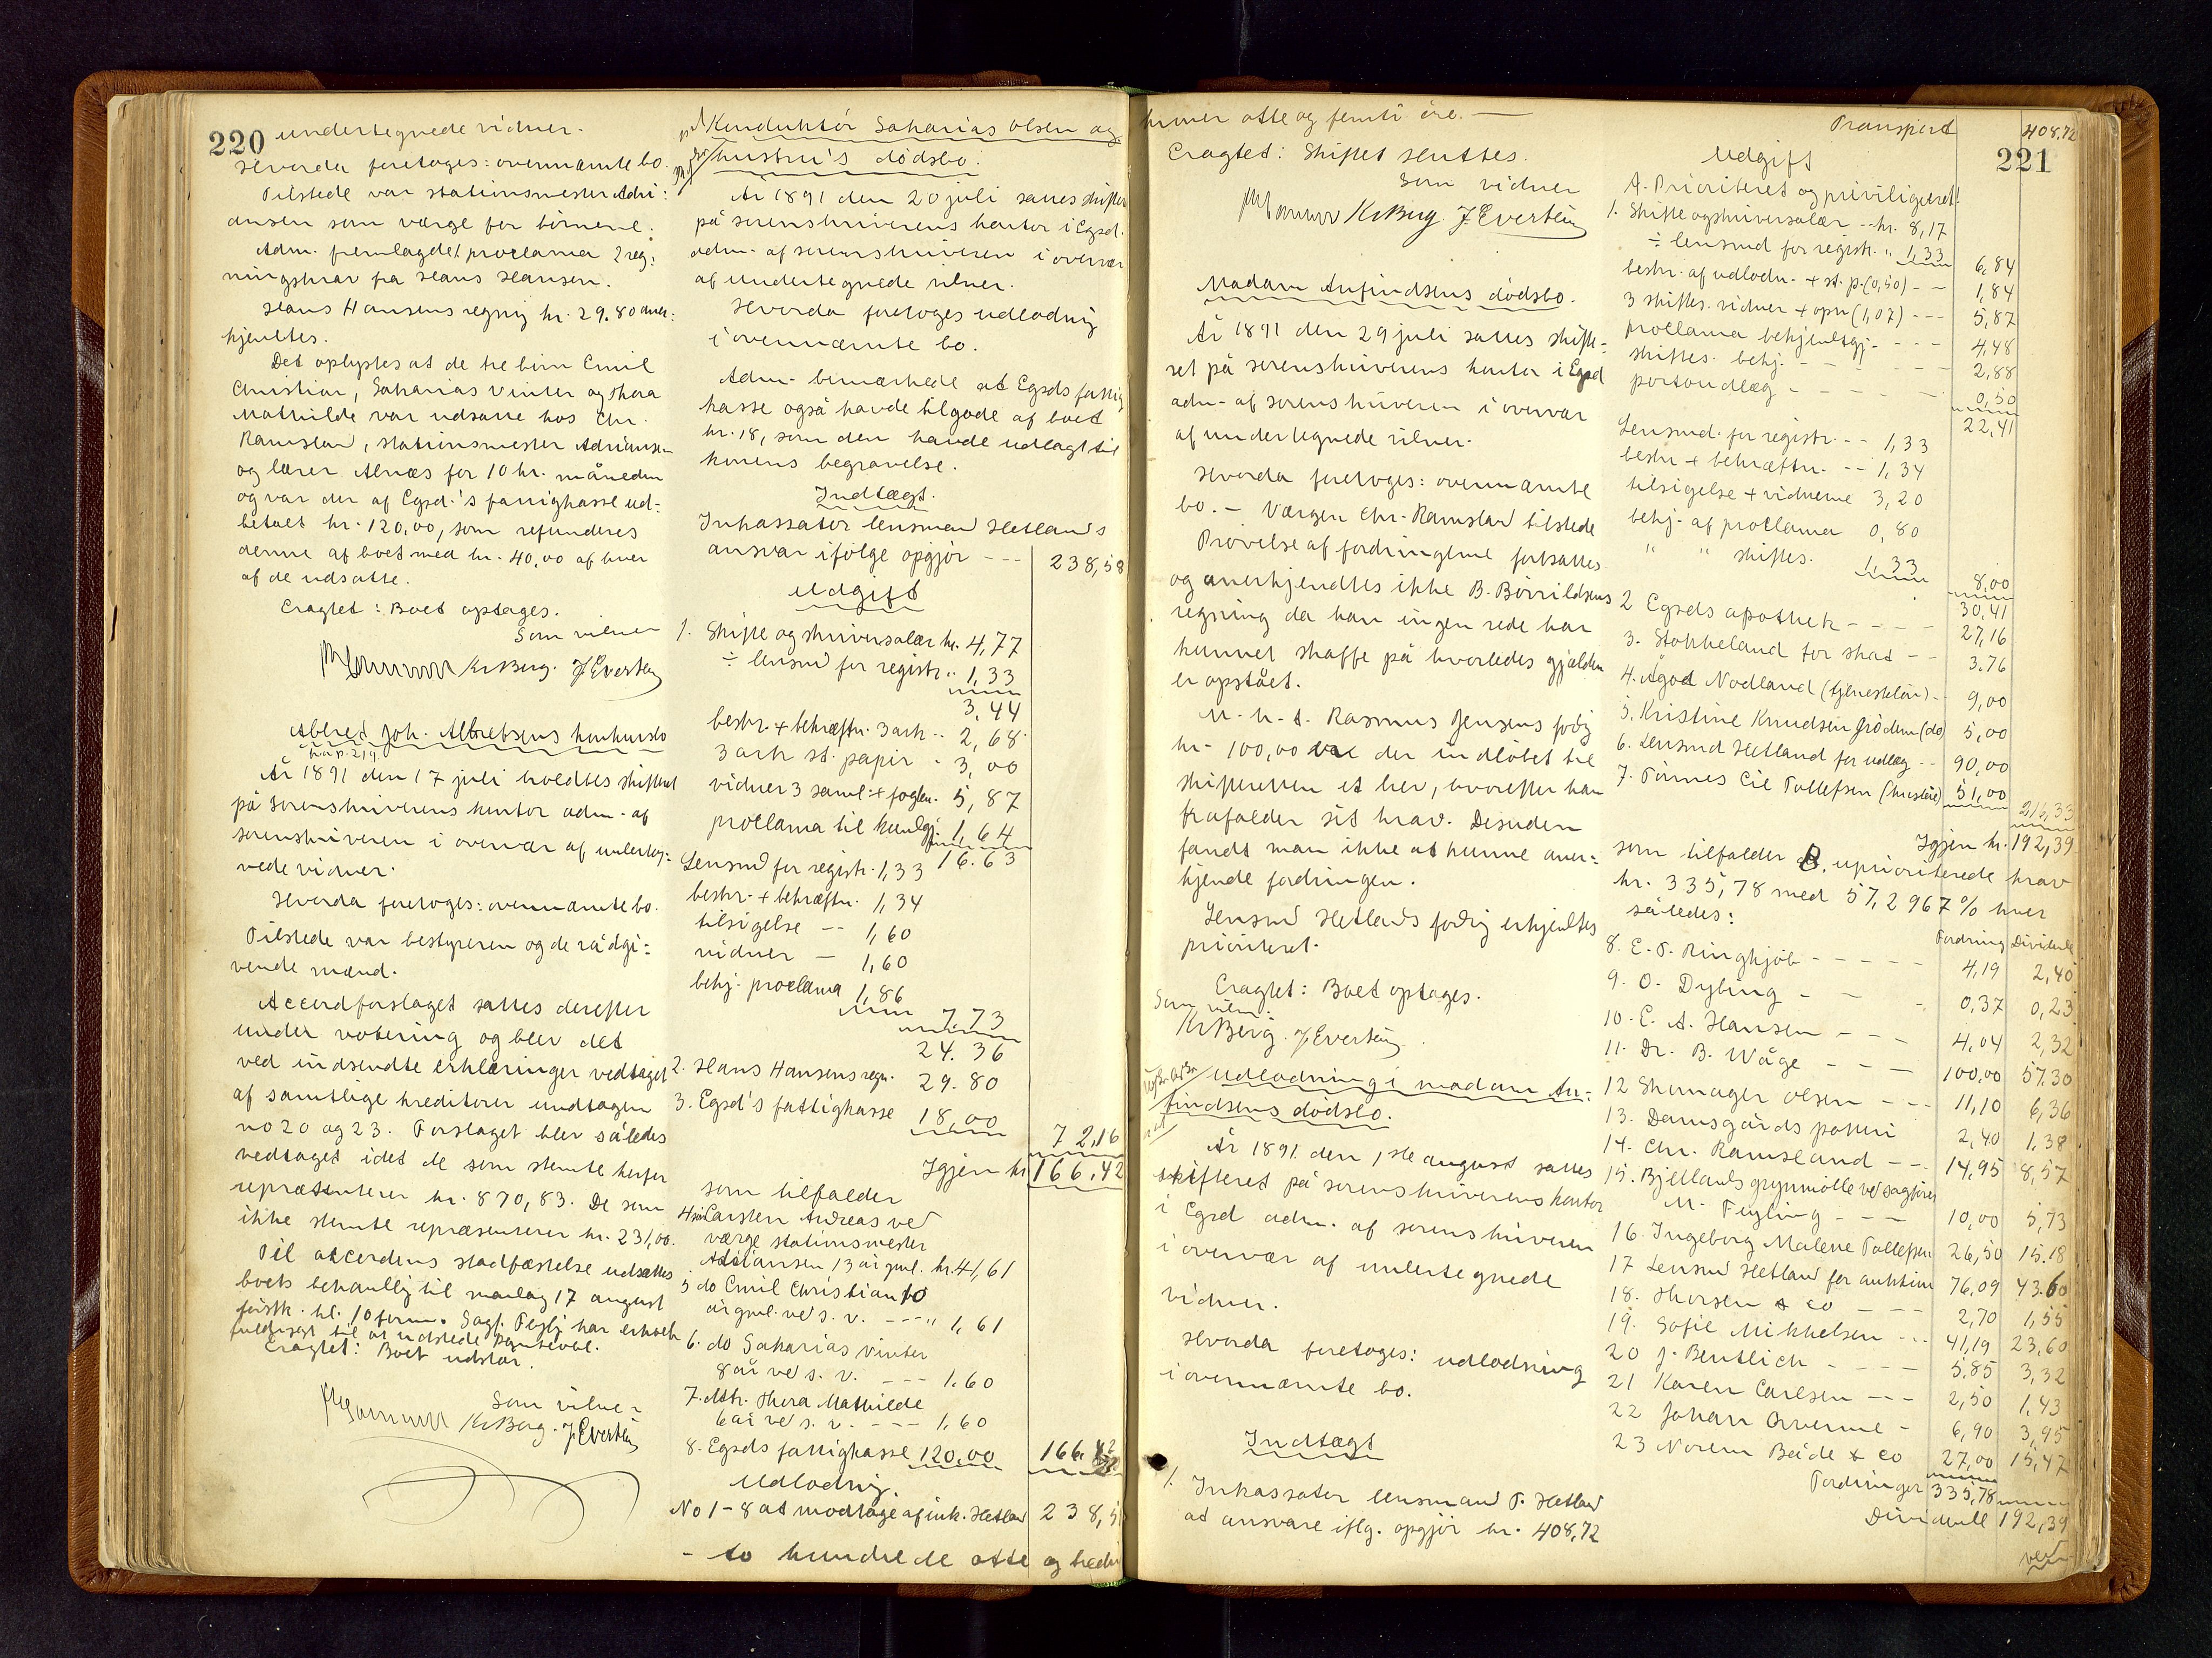 220 undertegnede vidner.
Hvorda foretoges: ovennævnte bo.
Tilstede var stationsmester Adri:
ansen som værge for børnene.
Adm. fremlagde 1. proclama 2 reg:
ningskrav fra Hans Hansen.
Hans Hansens regnig kr. 29.80 aner:
kjendtes.
Det oplystes at de tre børn Emil
Christian, Saharias Vinter og Thora
Mathilde var udsatte hos Chr.
Ramsland, stationsmester Adriansen
og lærer Alnæs for 10 kr. måneden
og var der af Egsd.'s fattigkasse ud-
betalt kr. 120,00, som refunderes
denne af boet med kr. 40,00 af hver
af de udsatte.
Eragtet: Boet optages.
Som vidner
Kr Berg. J Evertsen
Albred Joh. Albretsens konkursbo
År 1891 den 17 juli holdtes skifteret
på sorenskriverens kontor adm. af
sorenskriveren i overvær af underteg:
nede vidner.
Hvorda foretoges: ovennævnte bo.
Tilstede var bestyreren og de rådgi:
vende mænd.
Accordforslaget sattes derefter
under votering og blev det
ved indsendte erklæringer vedtaget
af samtlige kreditorer undtagen
no 20 og 23. Forslaget blev således
vedtaget idet de som stemte herfor
repræsenterer kr. 870,83. De som
ikke stemte repræsenterer kr. 231,00.
Til accordens stadfæstelse udsættes
boets behandlig til mandag 17 august
førstk. kl. 10 form. Sagf. Feylig har erholdt
fuldmagt til at udstede panteobl.
Eragtet: Boet udstår.
Som vidner
Kr Berg. J Evertsen
Konduktør Saharias Olsen og
hustru's dødsbo.
År 1891 den 20 juli sattes skifteret
på sorenskriverens kontor i Egsd.
adm. af sorenskriveren i overvær
af undertegnede vidner.
Hvorda foretoges udlodnig
i ovennævnte bo.
Adm. bemærkede at Egsds fattig
kasse også havde tilgode af boet
kr. 18, som den havde udlagt til
konens begravelse.
Indtægt.
Inkassator lensmand Hetlands
ansvar ifølge opgjør --- 238,58
Udgift
1. Skifte og skriversalær kr. 4,77
÷ lensmd for registr. " 1,33
3,44
beskr. + bekræftn. 3 ark -- 2,68
3 ark st. papir - 3,00
vidner 3 saml. + foglen. 5,87
proclama til kundgj. 1,64
16.63
Lensmd for registr. 1,33
beskr. + bekræftn. 1,34
tilsigelse -- 1,60
vidner — 1,60
bekj. proclama 1,86
7,73
24.36
2. Hans Hansens regn. 29.80
3. Egsd's fattigkasse 18,00
72,16
Igjen kr 166,42
som tilfalder
4. søn Carsten Andreas ved
værge stationsmester
Adriansen 13 år gml. kr. 41,61
5 do Emil Christian 10
år gml. ved s. v. --- " 1,61
6. do Saharias Vinter
8 år ved s. v. --- 1.60
7. dtr. Thora Mathilde
6 år ved s. v. --- 1,60
8. Egsds fattigkasse 120,00 166,42
Udlodnig.
No 1 - 8 at modtage af ink. Hetland 238,58
- to hundrede otte og tredve
kroner otte og femti øre. —
Eragtet: Skiftet sluttes.
Som vidner
Kr Berg. J Evertsen
Madam Anfindsens dødsbo.
År 1891 den 29 juli sattes skifte:
ret på sorenskriverens kontor i Egsd
adm. af sorenskriveren i overvær
af undertegnede vidner.
Hvorda foretoges: ovennævnte
bo. — Værgen Chr. Ramsland tilstede
Prøvelse af fordringerne fortsattes
og anerkjendtes ikke B. Børrildsens
regning da han ingen rede har
kunnet skaffe på hvorledes gjælden
er opstået.
M. h. t. Rasmus Jensens fodg
kr. 100,00 var der indløbet til
skifteretten et brev, hvorefter han
frafalder sit krav. Desuden
fandt man ikke at kunne aner:
kjende fordringen.
Lensmd Hetlands fodrig erkjendtes
prioriteret.
Eragtet: Boet optages.
Som vidner:
Kr Berg. J Evertsen
Udlodning i madam An:
findsens dødsbo.
År 1891 den 1ste august sattes
skifteret på sorenskriverens kontor
i Egsd adm. af sorenskriveren
i overvær af undertegnede
vidner.
Hvorda foretoges: udlodning
i ovennævnte bo.
Indtægt
1. Inkassator lensmand T. Hetland
at ansvare iflg. opgjør kr. 408,72
Transport 408,72
221
Udgift
A. Prioriteret og priviligeret!
1. Skifte og skriversalær -- kr. 8,17
÷ lensmd for registr. " 1,33 6,84
beskr. af udlodn. + st. p. (0,50) -- 1,84
3 skiftes. vidner + opn (1,07) --- 5,87
proclama bekjendtgj. --- 4,48
skiftes. bekj. ---- 2,88
portoudlæg - - - 0,50
22,41
Lensmd. for registr. -- 1,33
beskr + bekræftn. -- 1,34
tilsigelse + vidnerne 3,20
bekj. af proclama 0,80
" " skiftes. 1,33 8,00
30,41
2 Egsds apothek --- 27,16
3. Stokkeland for skat -- 3.76
4. Ågot Nodland (tjenesteløn) - 9,00
5. Kristine Knudsen Grødem (do) 5,00
6. Lensmd Hetland for udlæg -- 90,00
7. Tønnes Eie Tollefsen (husleie) 51,00
216,33
Igjen kr. 192,39
som tilfalder B. uprioriterede krav
kr. 335,78 med 57,2967 % hver
således:
Fordring Dividende
8. E. T. Ringkjøb ---- 4,19 2,40
9. O. Dybing - - - 0,37 0,23
10. E. A. Hansen --- 4,04 2,32
11. Dr. B. Wåge --- 100,00 57.30
12 Skomager Olsen --- 11,10 6,36
13. Damsgårds potteri 2,40 1,38
14. Chr. Ramsland -- 14,95 8,57
15. Bjellands grynmølle ved sagfører
M. Feyling --- 10,00 5,73
16. Ingeborg Malene Tollefsen 26,50 15.18
17 Lensmd Hetland for auktion 76,09 43.60
18. Thorsen & Co --- 2,70 1,55
19. Sofie Mikkelsen --- 41,19 23,60
20 J. Bentlich ---- 5.85 3,32
21 Karen Carlsen --- 2,50 1.43
22 Johan - 6,90 3,95
23 Norem Både & Co 27,00 15,47
Fordringer 335,78
Dividende 192,39